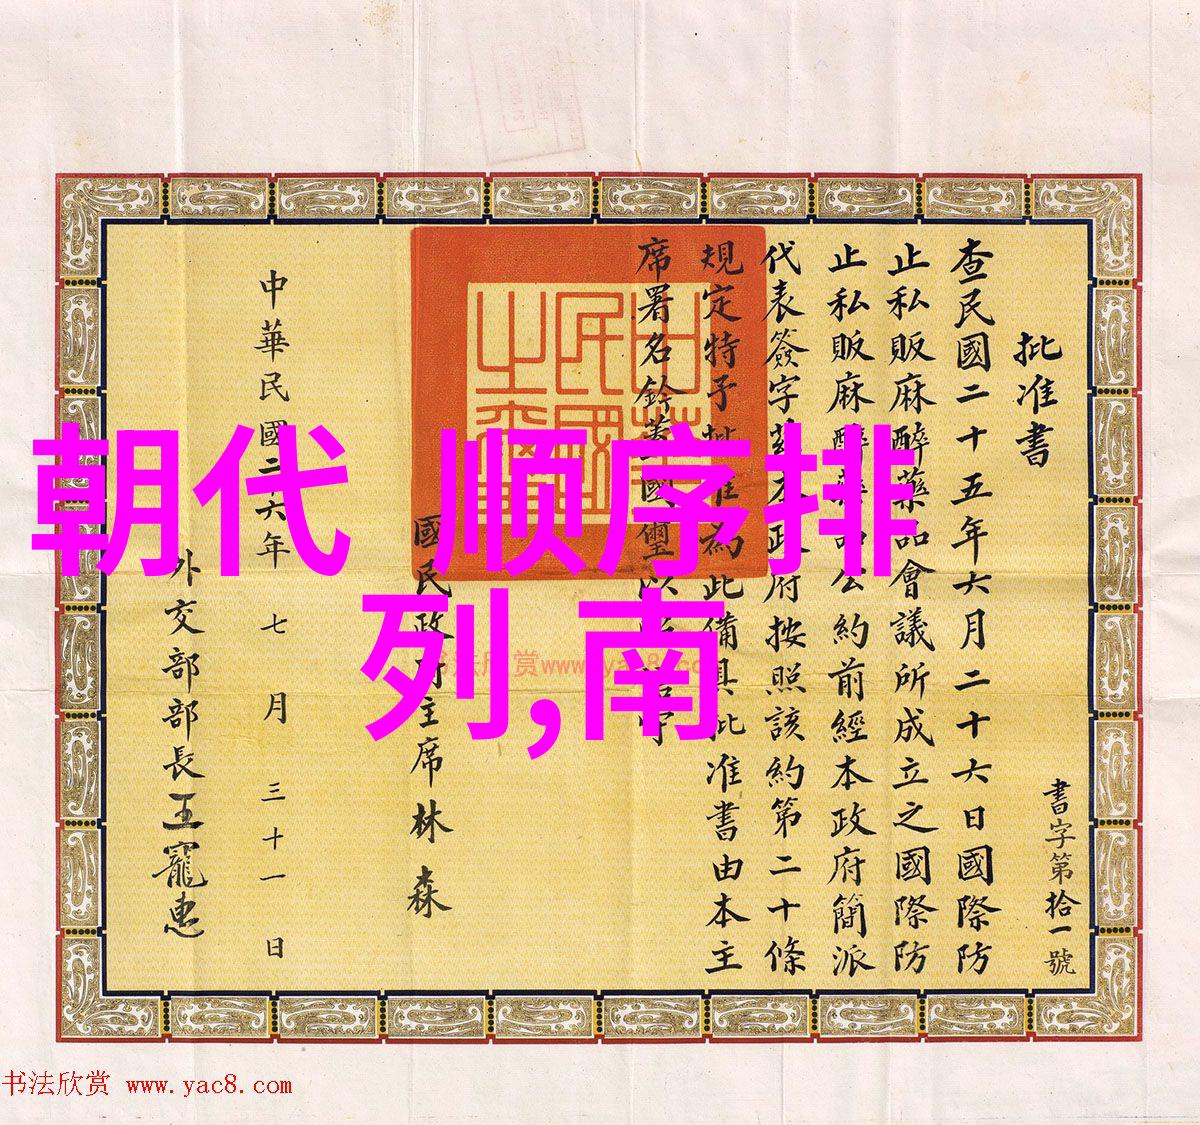 朝代 顺序排
列,南
書字第拾一號
批准書
查民國二十五年六月二十六日國際防
止私販麻醉藥品會議所成立之國際防
止私販麻醉藥品公約前經本政府簡派
代表簽字茲本政府按照該約第二十條
規定特予批准為此備具批准書由本主
席署名鈐蓋國璽以守
中華
民國
之璽
國民政府主席林森
中華民國二六年七月三十一日
外交部部長王寵惠
书法欣赏www.yac8.com
书法欣赏 www.yac8.com